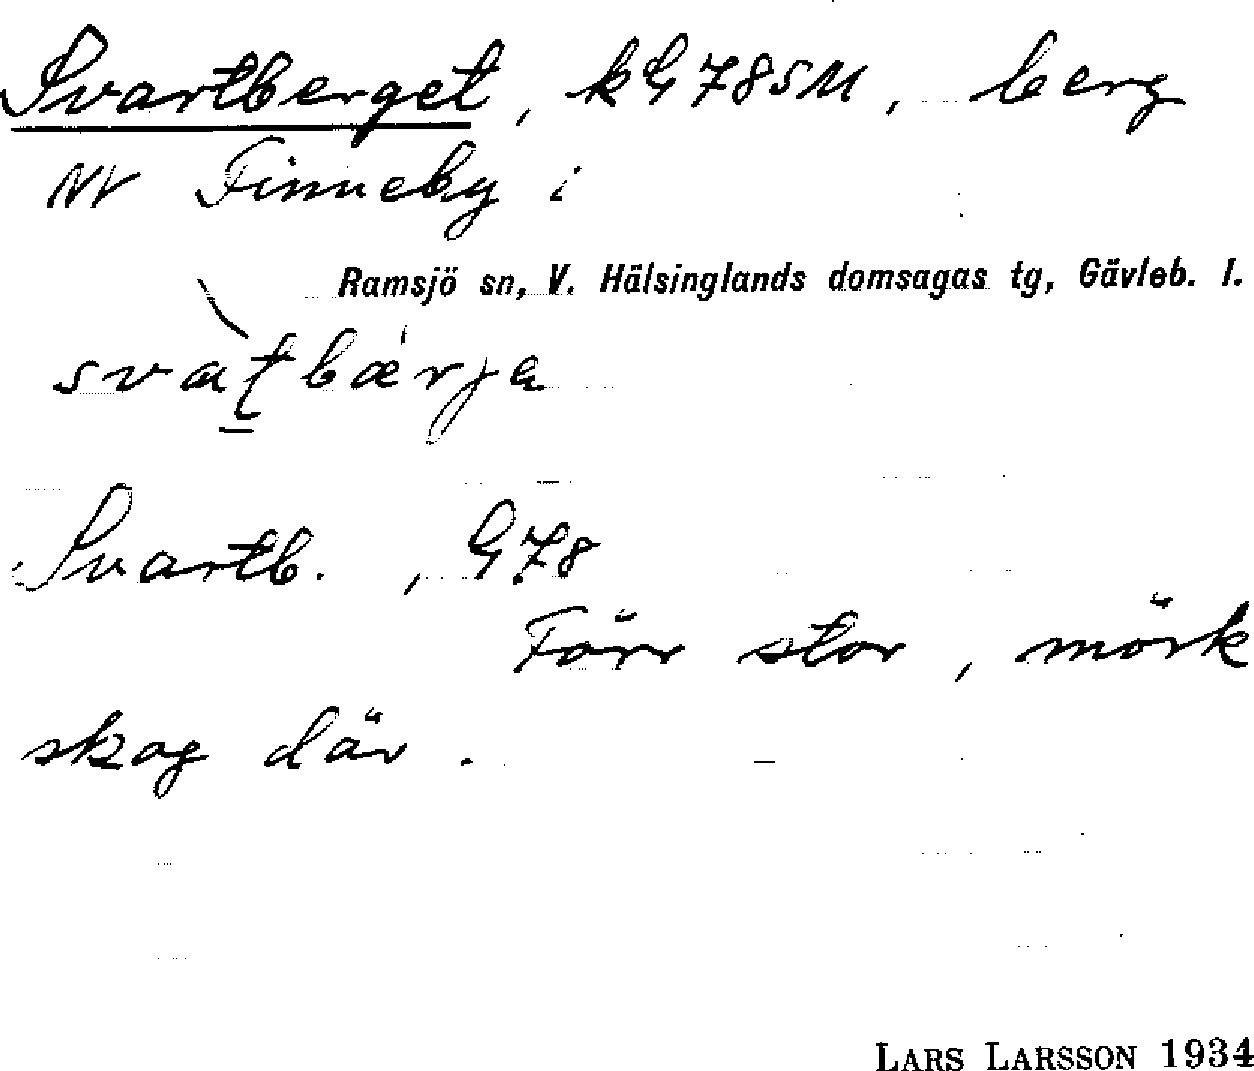 Svartberget, kG78SM, berg
NV Finneby i
Ramsjö sn, V. Hälsinglands domsagas tg, Gävleb. l.
svàṯbǽrja
Svartb., G78
Förr stor, mörk
skog där.
LARS LARSSON 1934